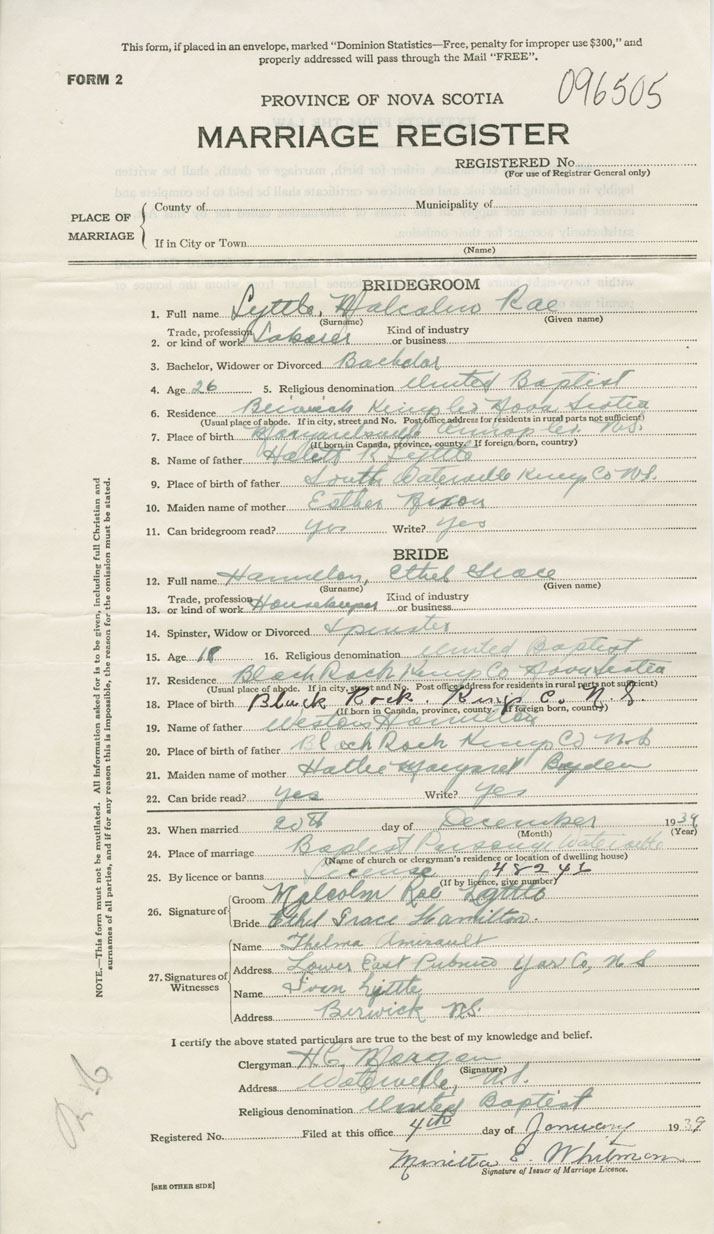 This form, if placed in an envelope, marked "Dominion Statistics—Free, penalty for improper use $300," and
properly addressed will pass through the Mail "FREE".
FORM 2
096505
PROVINCE OF NOVA SCOTIA
MARRIAGE REGISTER
REGISTERED No.
(For use of Registrar General only)
PLACE OF MARRIAGE
County of Municipality of
If in City or Town
(Name)
BRIDEGROOM
1. Full name Lyttle, Malcolm Rae
(Surname) (Given name)
Trade, profession Kind of industry
2. or kind of work Laborer or business
3. Bachelor, Widower or Divorced Bachelor
4. Age 26 5. Religious denomination United Baptist
6. Residence Berwick Kings Co Nova Scotia
(Usual place of abode. If in city, street and No. Post office address for residents in rural parts not sufficient)
7. Place of birth Kings Co. N.S.
(If born in Canada, province, county. If foreign born, country)
8. Name of father R Lyttle
9. Place of father South Waterville Kings Co N.S.
10. Maiden name of mother Esther
11. Can bridegroom read? yes Write? yes
BRIDE
12. Full name Hamilton, Ethel Grace
(Surname) (Given name)
Trade, profession Kind of industry
13. or kind of work Housekeeper or business
14. Spinster, Widow or Divorced Spinster
15. Age 18 16. Religious denomination United Baptist
17. Residence Black Rock Kings Co Nova Scotia
(Usual place of abode. If in city, street and No. Post office address for residents in rural parts not sufficient)
18. Place of birth Black Rock. Kings C. N.S.
(If born in Canada, province, county. If foreign born, country)
19. Name of father Weston Hamilton
20. Place of birth of father Black Rock Kings Co N.S
21. Maiden name of mother Hattie Margaret
22. Can bride read? yes Write? yes
23. When married 20th day of December 1939
(Month) (Year)
24. Place of marriage Baptist Parsonage Waterville
(Name of church or clergyman's residence or location of dwelling house)
25. By licence or banns License 48241
(If by licence, give number)
26. Signature of
Groom Malcolm Rae Lyttle
Bride Ethel Grace Hamilton.
27. Signatures of Witnesses
Name Thelma Amirault
Address Lower East Pubnico Yar Co, N S
Name Ivan Lyttle
Address Berwick N.S.
I certify the above stated particulars are true to the best of my knowledge and belief.
Clergyman H.C. Morgan
(Signature)
Address Waterville, N.S.
Religious denomination United Baptist
Registered No. Filed at this office 4th day of January 1939
E. Whitman
Signature of Issuer of Marriage Licence.
[SEE OTHER SIDE]
NOTE.—This form must not be mutilated. All information asked for is to be given, including full Christian and
surnames of all parties, and if for any reason this is impossible, the reason for the omission must be stated.